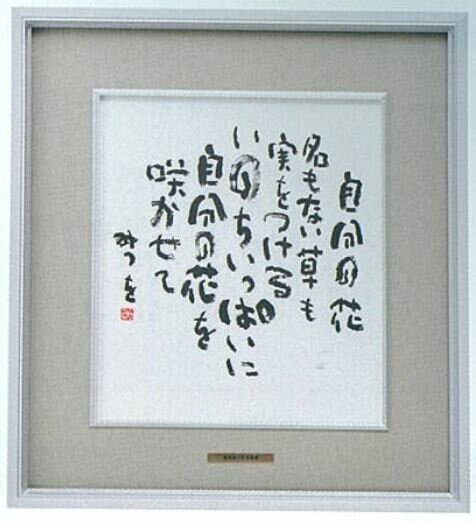 自分の花
名もない草も
実をつける
いのちいっぱいに
自分の花を
咲かせて
みつを